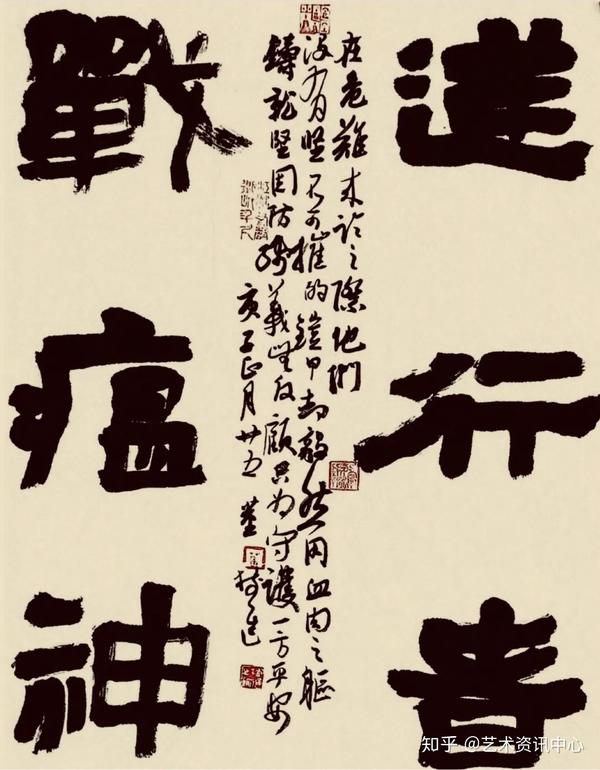 逆行者
在危難来临之際他們
没有坚不可摧的鎧甲却毅然用血肉之軀
鑄就坚固防线義無反顧只为守護一方平安
庚子正月廿五 董
戰瘟神
知乎 @艺术资讯中心